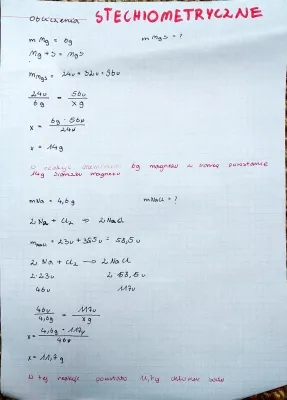 Obliczenia STECHIOMETRYCZNE
m Mg = 6g m MgS = ?
Mg + S = MgS
m MgS = 24u + 32u = 56u
24u / 6g = 56u / x g
x = 6g · 56u / 24u
x = 14g
W reakcji 6g magnezu z siarką powstanie
14g siarczku magnezu
mNa = 4,6g mNaCl = ?
2 Na + Cl2 => 2 NaCl
m NaCl = 23u + 35,5u = 58,5u
2 Na + Cl2 → 2 NaCl
2·23u 2·58,5u
46u 117u
46u / 4,6g = 117u / x g
x = 4,6g · 117u / 46u
x = 11,7g
W tej reakcji powstało 11,7g chlorku sodu